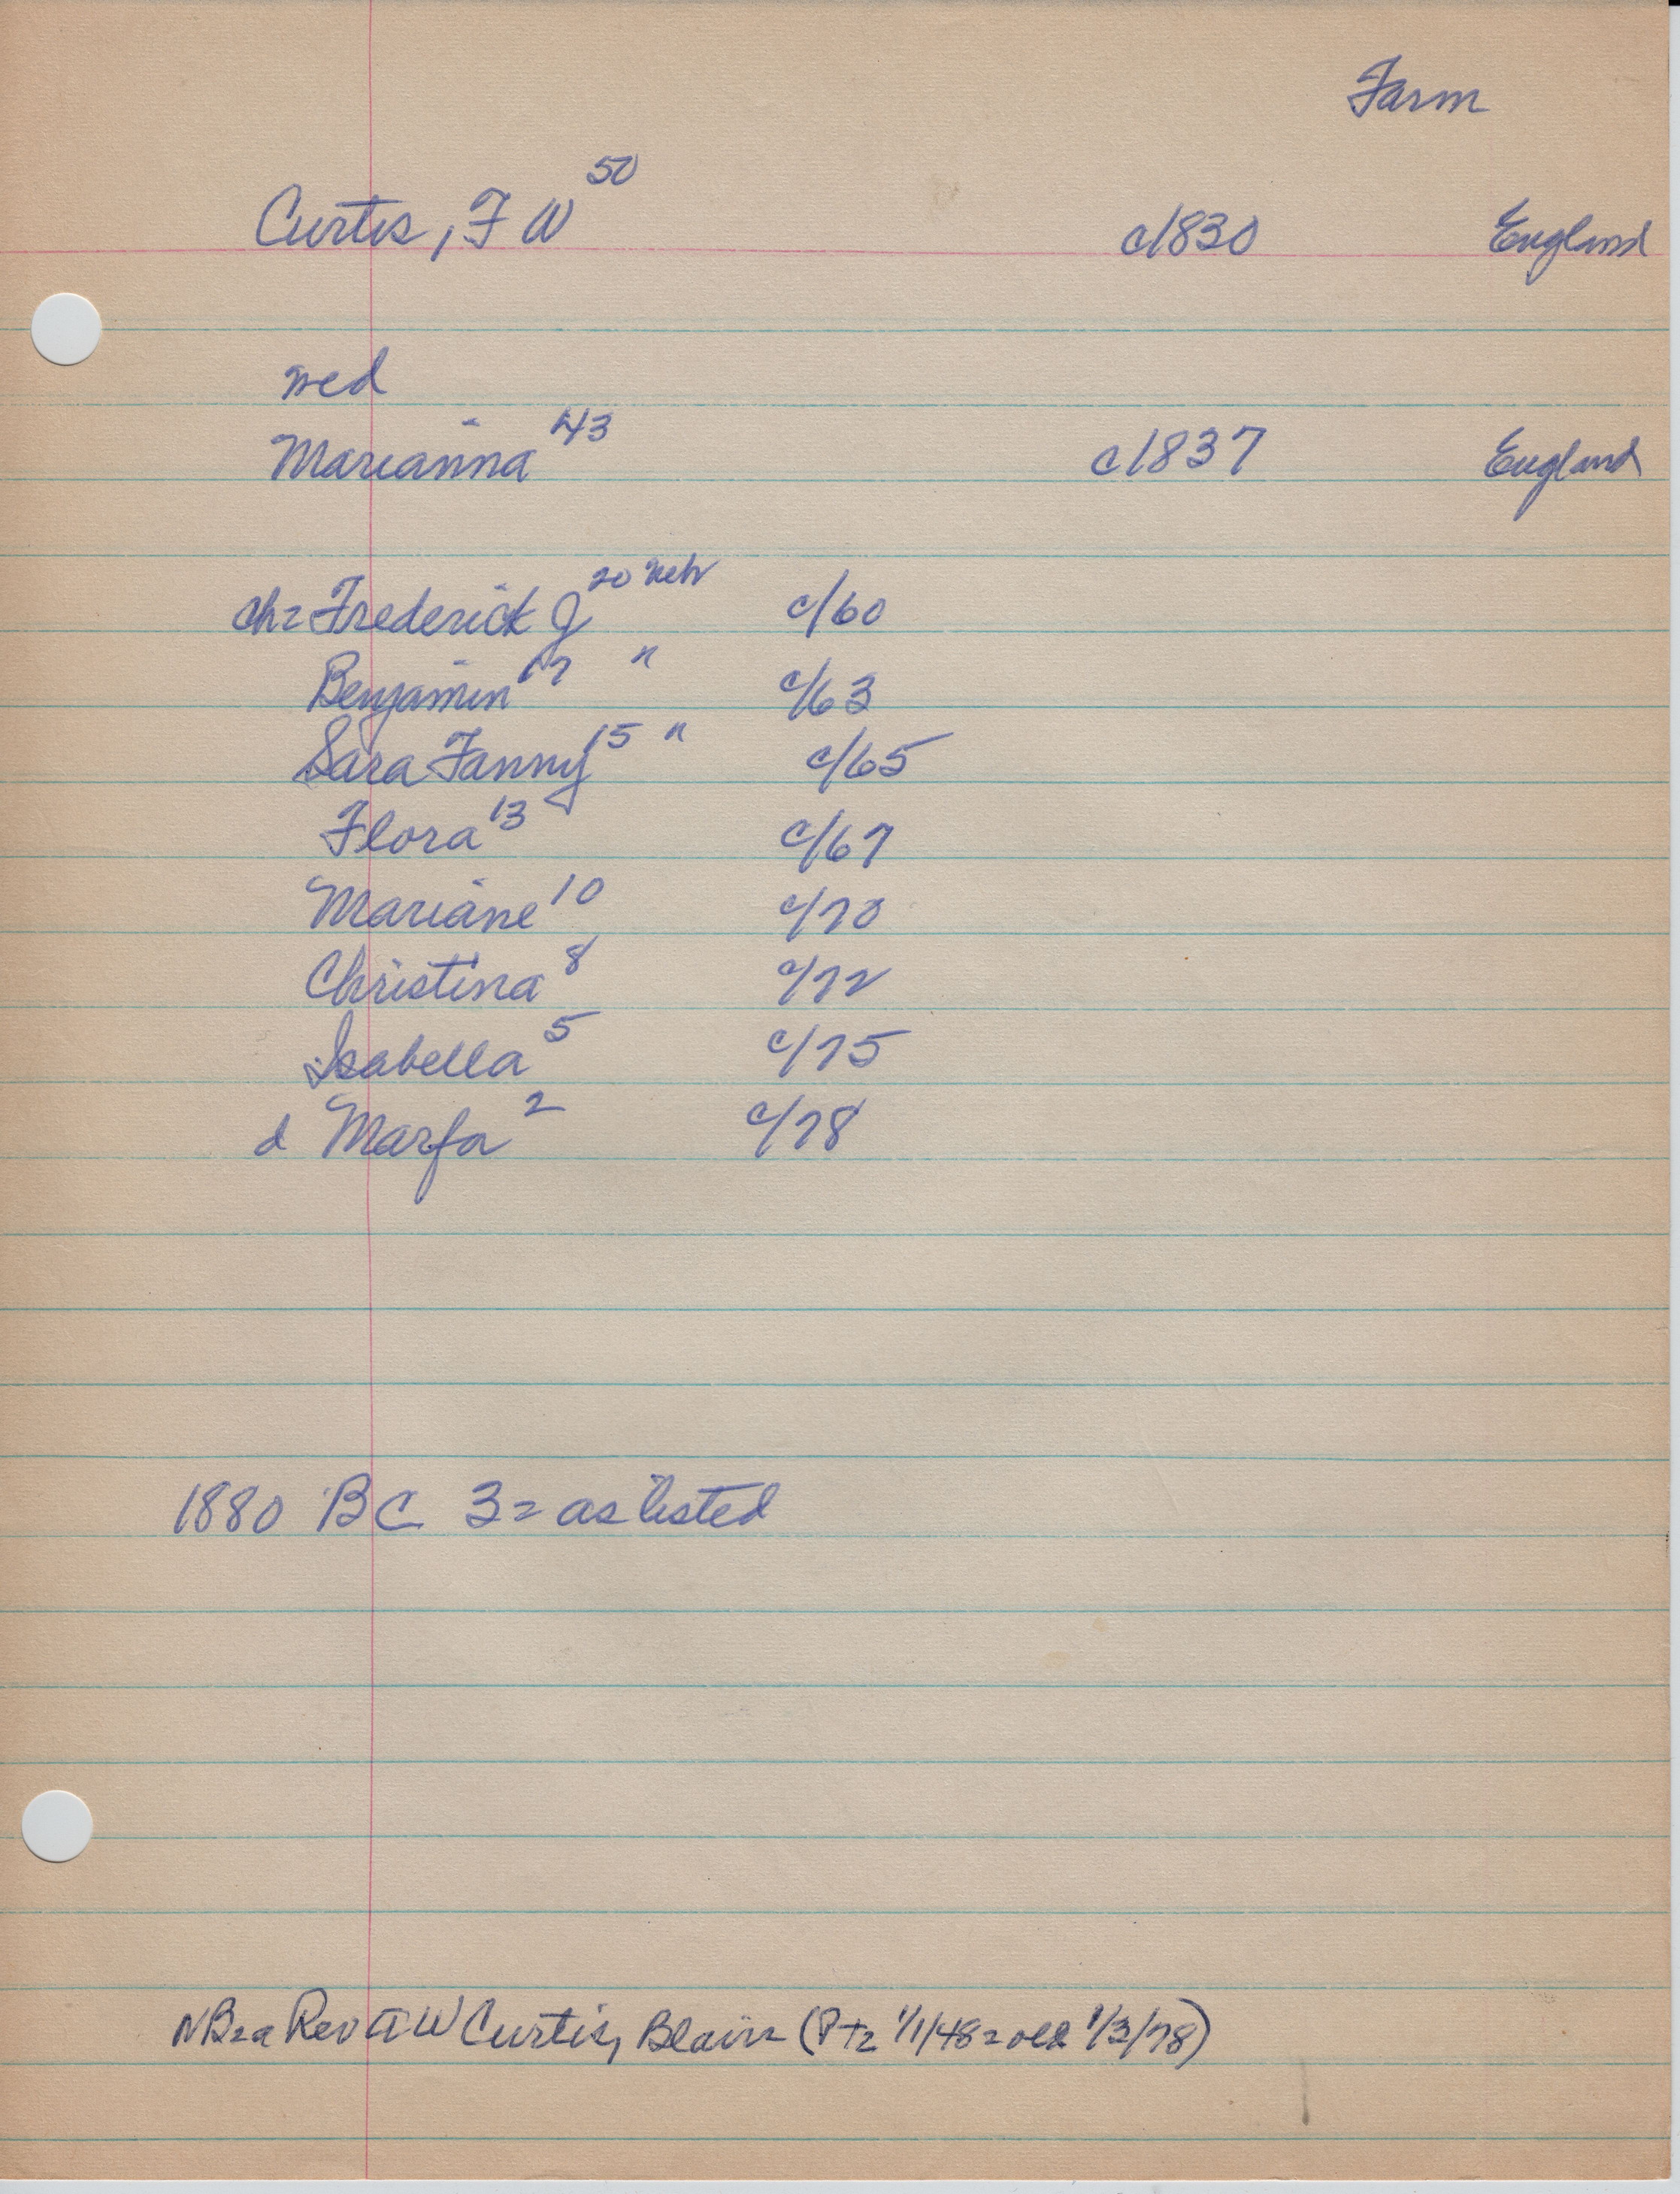 Farm
Curtis, F W 50 c1830 England
wed
Marianna 43 c1837 England
ch= Frederick J 20 Neb c/60
Benjamin 17 " c/63
Sara Fanny 15 " c/65
Flora 13 c/67
Mariane 10 c/70
Christina 8 c/72
Isabella 5 c/75
d Marfa 2 c/78
1880 BC 3= as listed
NB=a Rev A W Curtis, Blair= (Pt= 1/1/48= 1/3/78)